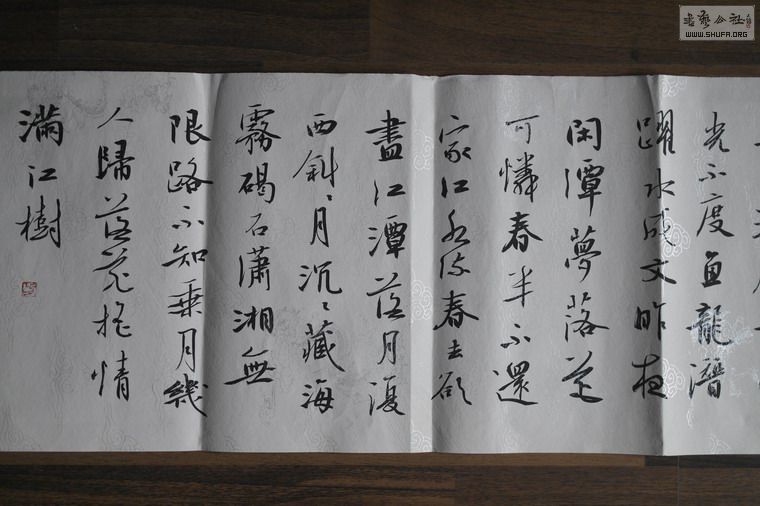 光不度魚龍潛
躍水成文昨夜
閑潭夢落花
可憐春半不還
家江水流春去欲
盡江潭落月復
西斜〻月沉〻藏海
霧碣石瀟湘無
限路不知乘月幾
人歸落花搖情
滿江樹
書藝公社
WWW.SHUFA.ORG